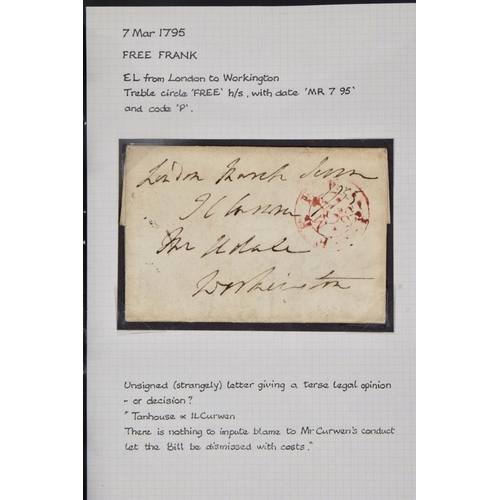 7 Mar 1795
FREE FRANK
EL from London to Workington
Treble circle 'FREE' h/s, with date 'MR 7 95'
and code 'P'.
London March Seven
1795
Mr Udale
Workington
Unsigned (strangely) letter giving a terse legal opinion
- or decision?
"Tanhouse ∝ ILCurwen
There is nothing to impute blame to Mr Curwen's conduct
let the Bill be dismissed with costs."